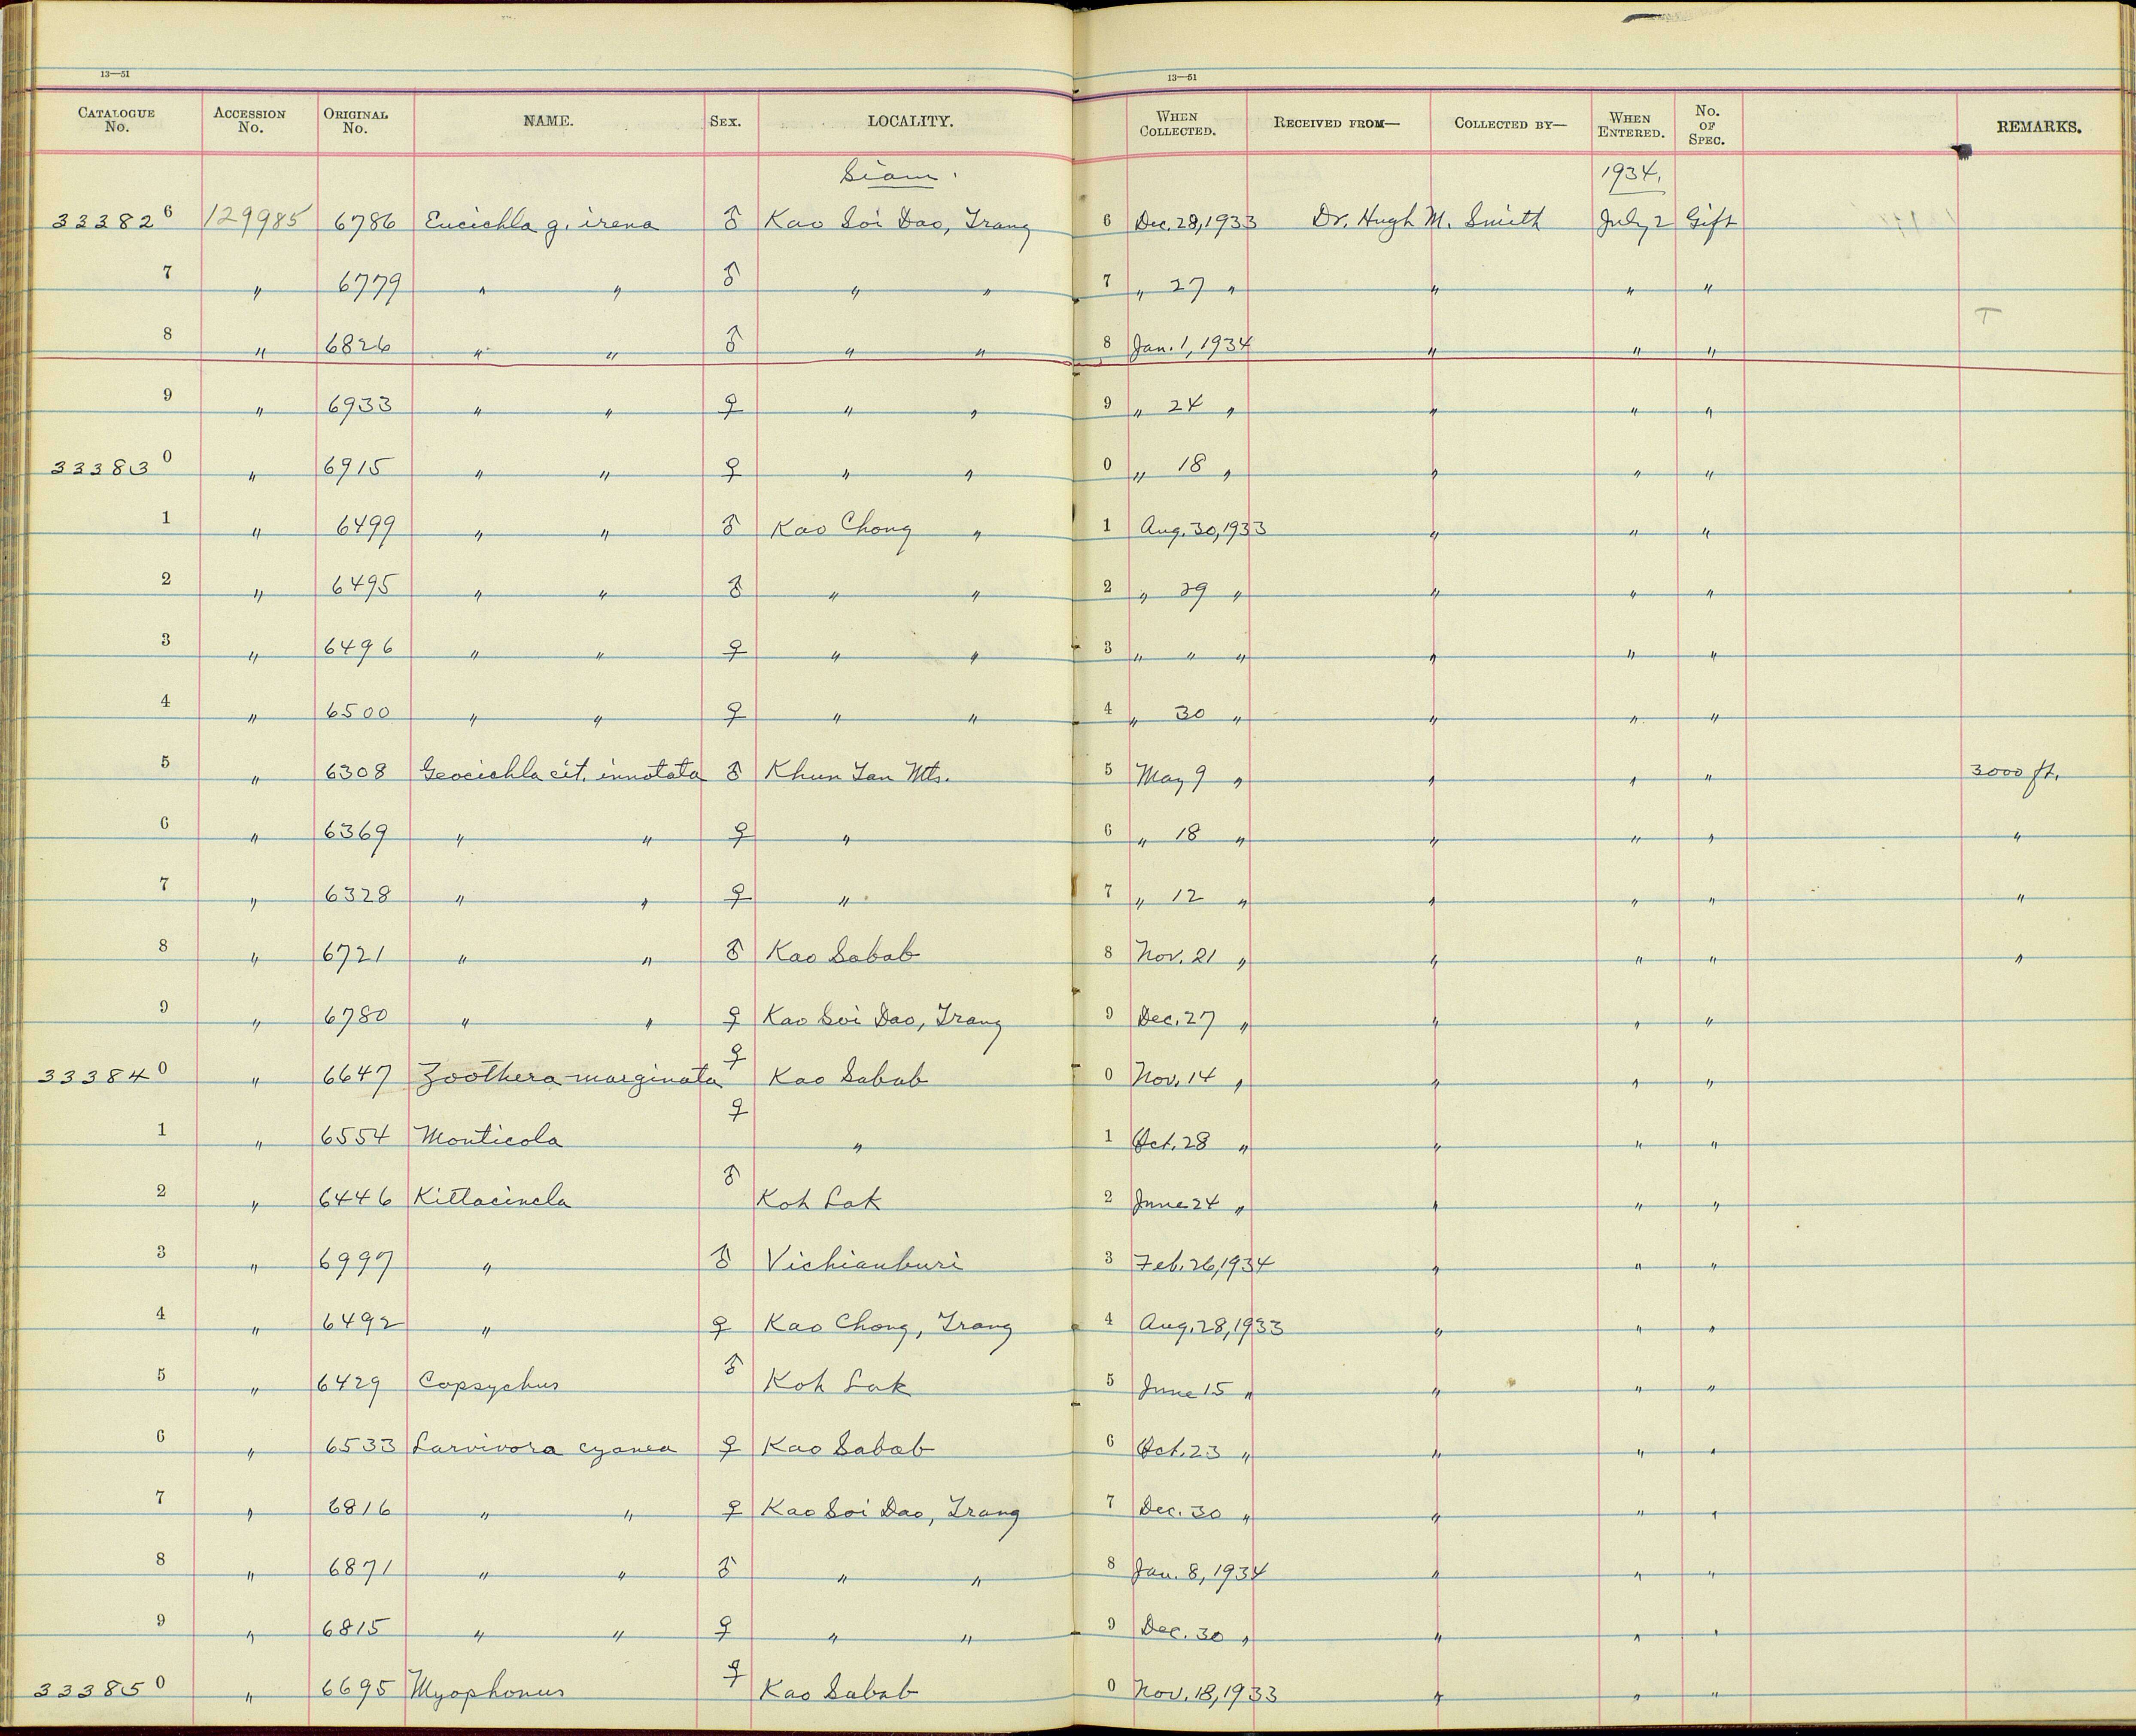 13—51
13—51
CATALOGUE No. ACCESSION No. ORIGINAL No. NAME. SEX. LOCALITY. WHEN COLLECTED. RECEIVED FROM— COLLECTED BY— WHEN ENTERED. No. OF SPEC. REMARKS.
Siam. 1934.
333826 129985 6786 Eucichla g. irena ♂ Kao Soi Dao, Trang 6 Dec. 28, 1933 Dr. Hugh M. Smith July 2 Gift
7 " 6779 " " ♂ " " 7 " 27 " " " "
T
8 " 6826 " " ♂ " " 8 Jan. 1, 1934 " " "
9 " 6933 " " ♀ " " 9 " 24 " " " "
333830 " 6915 " " ♀ " " 0 " 18 " " " "
1 " 6499 " " ♂ Kao Chong " 1 Aug. 30, 1933 " " "
2 " 6495 " " ♂ " " 2 " 29 " " " "
3 " 6496 " " ♀ " " 3 " " " " " "
4 " 6500 " " ♀ " " 4 " 30 " " " "
5 " 6308 Geocichla cit. innotata ♂ Khun Tan Mts. 5 May 9 " " " " 3000 ft.
6 " 6369 " " ♀ " 6 " 18 " " " " "
7 " 6328 " " ♀ " 7 " 12 " " " " "
8 " 6721 " " ♂ Kao Sabab 8 Nov. 21 " " " " "
9 " 6780 " " ♀ Kao Soi Dao, Trang 9 Dec. 27 " " " "
333840 " 6647 Zoothera marginata ♀ Kao Sabab 0 Nov. 14 " " " "
1 " 6554 Monticola ♀ " 1 Oct. 28 " " " "
2 " 6446 Kittacincla ♂ Koh Lak 2 June 24 " " " "
3 " 6997 " ♂ Vichianburi 3 Feb. 26, 1934 " " "
4 " 6492 " ♀ Kao Chong, Trang 4 Aug. 28, 1933 " " "
5 " 6429 Copsychus ♂ Koh Lak 5 June 15 " " " "
6 " 6533 Larvivora cyanea ♀ Kao Sabab 6 Oct. 23 " " " "
7 " 6816 " " ♀ Kao Soi Dao, Trang 7 Dec. 30 " " " "
8 " 6871 " " ♂ " " 8 Jan. 8, 1934 " " "
9 " 6815 " " ♀ " " 9 Dec. 30 " " " "
333850 " 6695 Myophonus ♀ Kao Sabab 0 Nov. 18, 1933 " " "